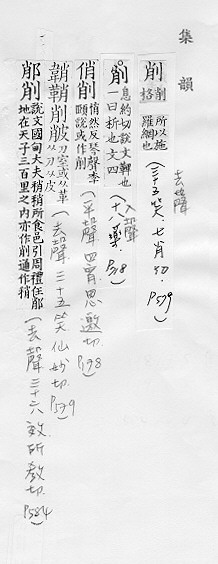 集韻
削 削格 所以施羅網也
(去聲 三十五笑 七肖切 P579)
削 息約切說文鞞也一曰析也文四
(入聲 十八藥 P718)
俏削 悄然反琴聲李頤說或作削
(平聲 四宵 思邀切 P178)
韒鞘削𩋃 刀室或从革从刀从皮
(去聲 三十五笑 仙妙切 P579)
郮削 說文國甸大夫稍稍所食邑引周禮任郮地在天子三百里之內亦作削通作稍
(去聲 三十六效 所教切 P584)